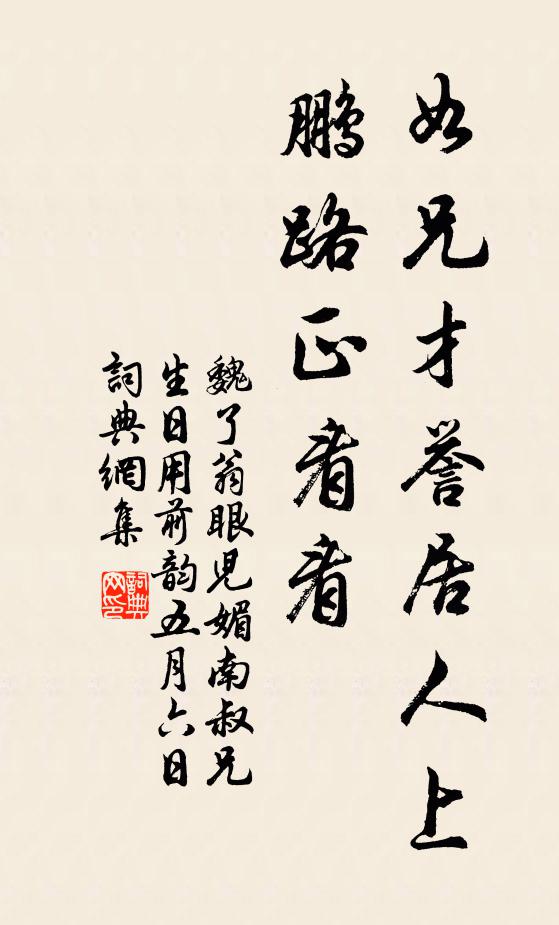 如兄才誉居人上
鹏路正看看
魏了翁眼児媚南叔兄
生日用前韵五月六日
詞典網集
詞典网印